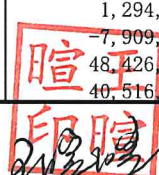 1,294,
-7,909,
48,426,
40,516,
王
暄
印